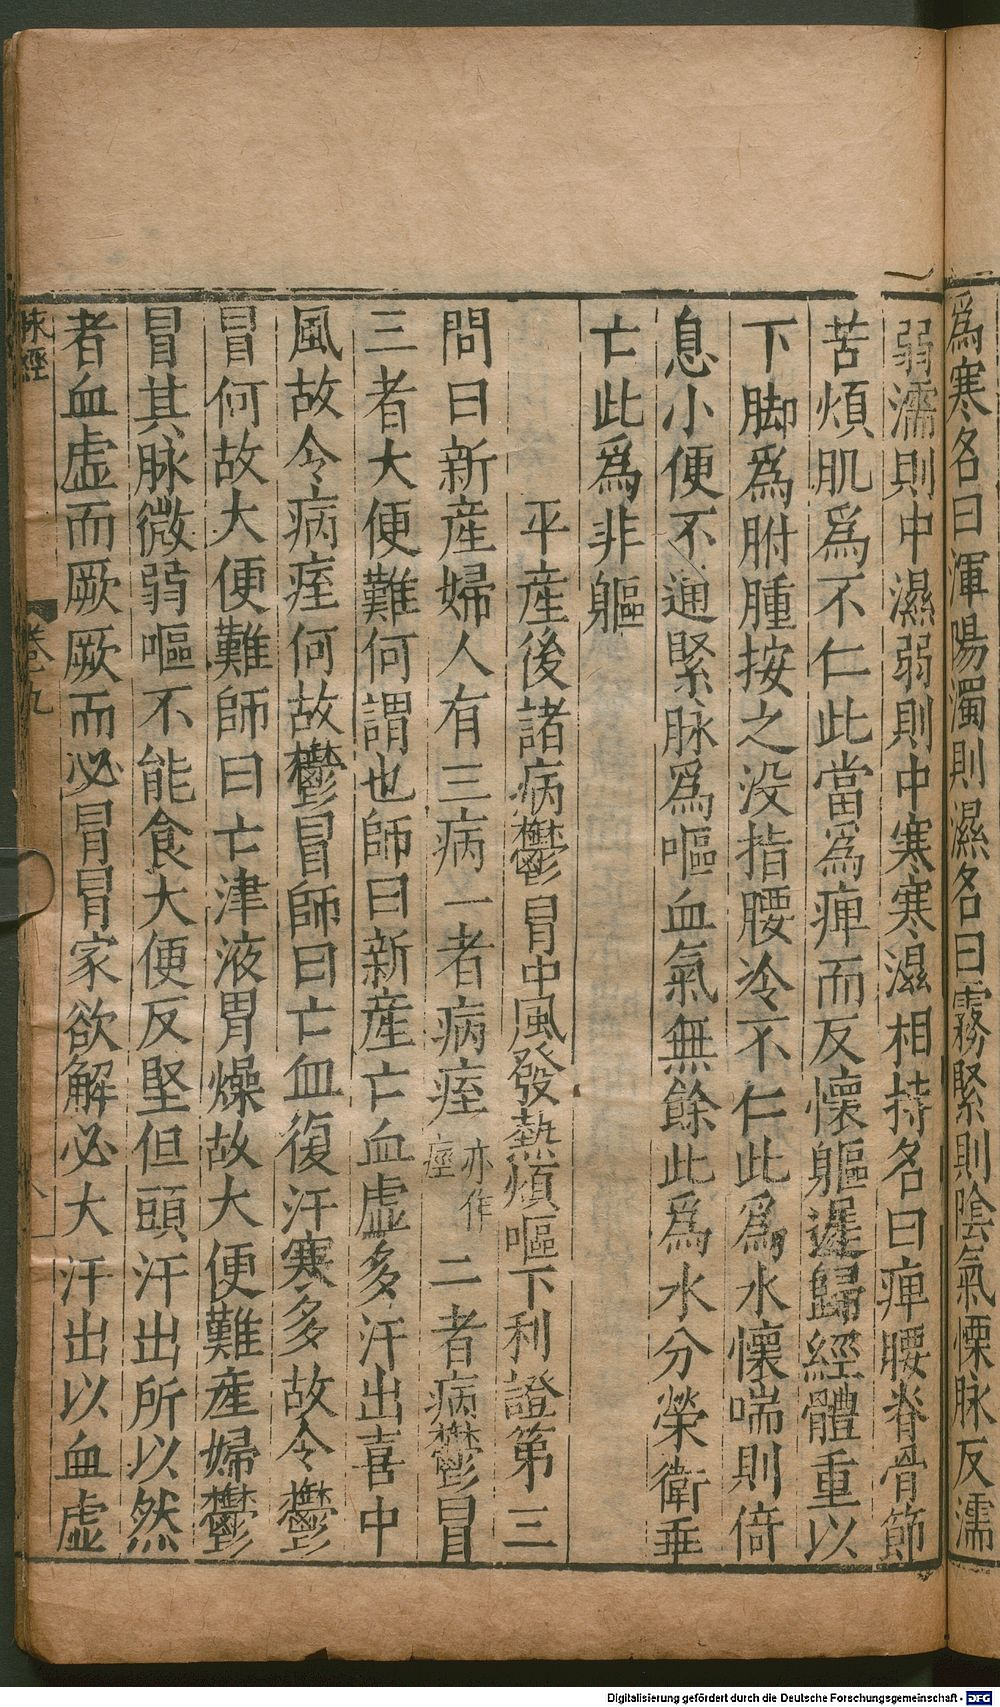 爲寒名曰渾陽濁則濕名曰霧緊則陰氣慄脉反濡
弱濡則中濕弱則中寒寒濕相持名曰痺腰脊骨節
苦煩肌爲不仁此當爲痺而反懷軀遲歸經體重以
下脚爲胕腫按之没指腰冷不仁此爲水懷喘則倚
息小便不通緊脉爲嘔血氣無餘此爲水分榮衛乖
亡此爲非軀
平產後諸病鬱冒中風發熱煩嘔下利證第三
問曰新產婦人有三病一者病痓亦作痙二者病鬱冒
三者大便難何謂也師曰新產亡血虛多汗出喜中
風故令病痓何故鬱冒師曰亡血復汗寒多故令鬱
冒何故大便難師曰亡津液胃燥故大便難產婦鬱
冒其脉微弱嘔不能食大便反堅但頭汗出所以然
者血虛而厥厥而必冒冒家欲解必大汗出以血虛
脉經 卷九 八
Digitalisierung gefördert durch die Deutsche Forschungsgemeinschaft - DFG